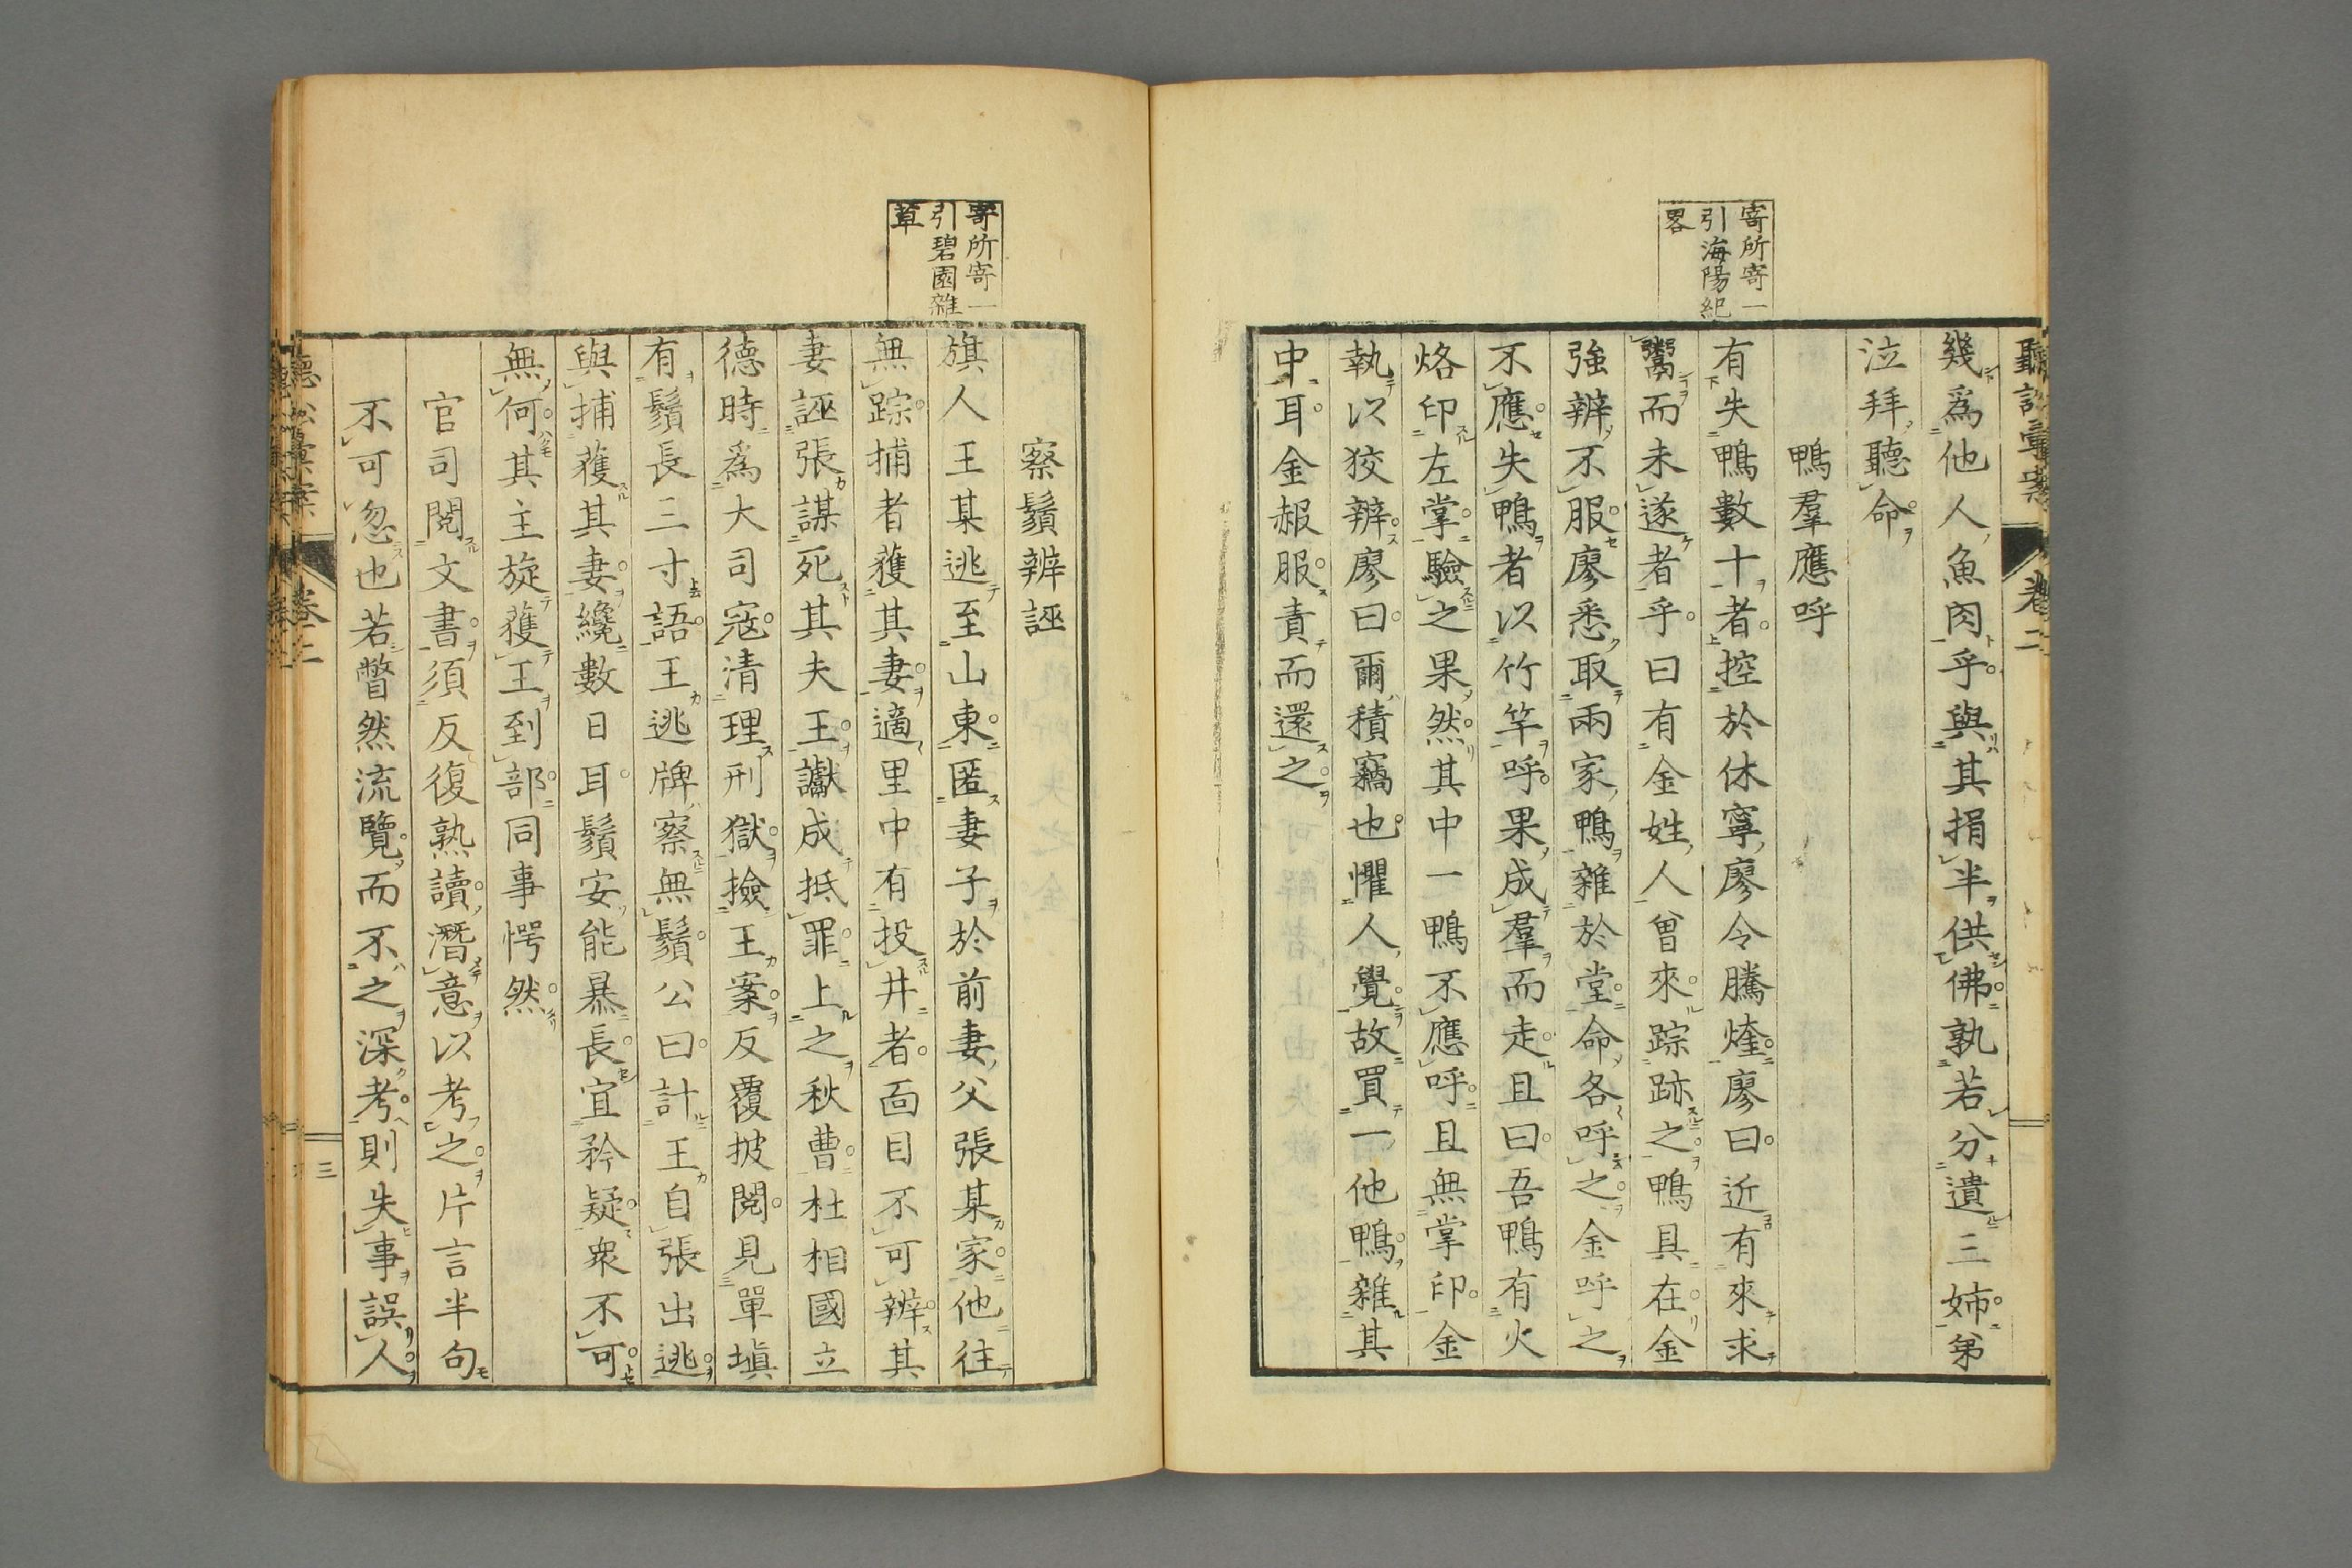 聽訟彙案 卷二
幾爲他人魚肉乎與其捐半供佛孰若分遺三姉弟
泣拜聽命
鴨羣應呼
寄所寄一
引海陽紀
畧
有失鴨數十者控於休寧廖令騰煃廖曰近有來求
鬻而未遂者乎曰有金姓人曾來踪跡之鴨具在金
強辨不服廖悉取兩家鴨雜於堂命各呼之金呼之
不應失鴨者以竹竿呼果成羣而走且曰吾鴨有火
烙印左掌驗之果然其中一鴨不應呼且無掌印金
執以狡辨廖曰爾積竊也懼人覺故買一他鴨雜其
中耳金赧服責而還之
察鬚辨誣
寄所寄一
引碧園雜
草
旗人王某逃至山東匿妻子於前妻父張某家他往
無踪捕者獲其妻適里中有投井者面目不可辨其
妻誣張謀死其夫王讞成抵罪上之秋曹杜相國立
德時爲大司寇清理刑獄撿王案反覆披閱見單塡
有鬚長三寸語王逃牌察無鬚公曰計王自張出逃
與捕獲其妻纔數日耳鬚安能暴長宜矜疑衆不可
無何其主旋獲王到部同事愕然
官司閱文書須反復熟讀潛意以考之片言半句
不可忽也若瞥然流覽而不之深考則失事誤人
聽訟彙案 卷二 三